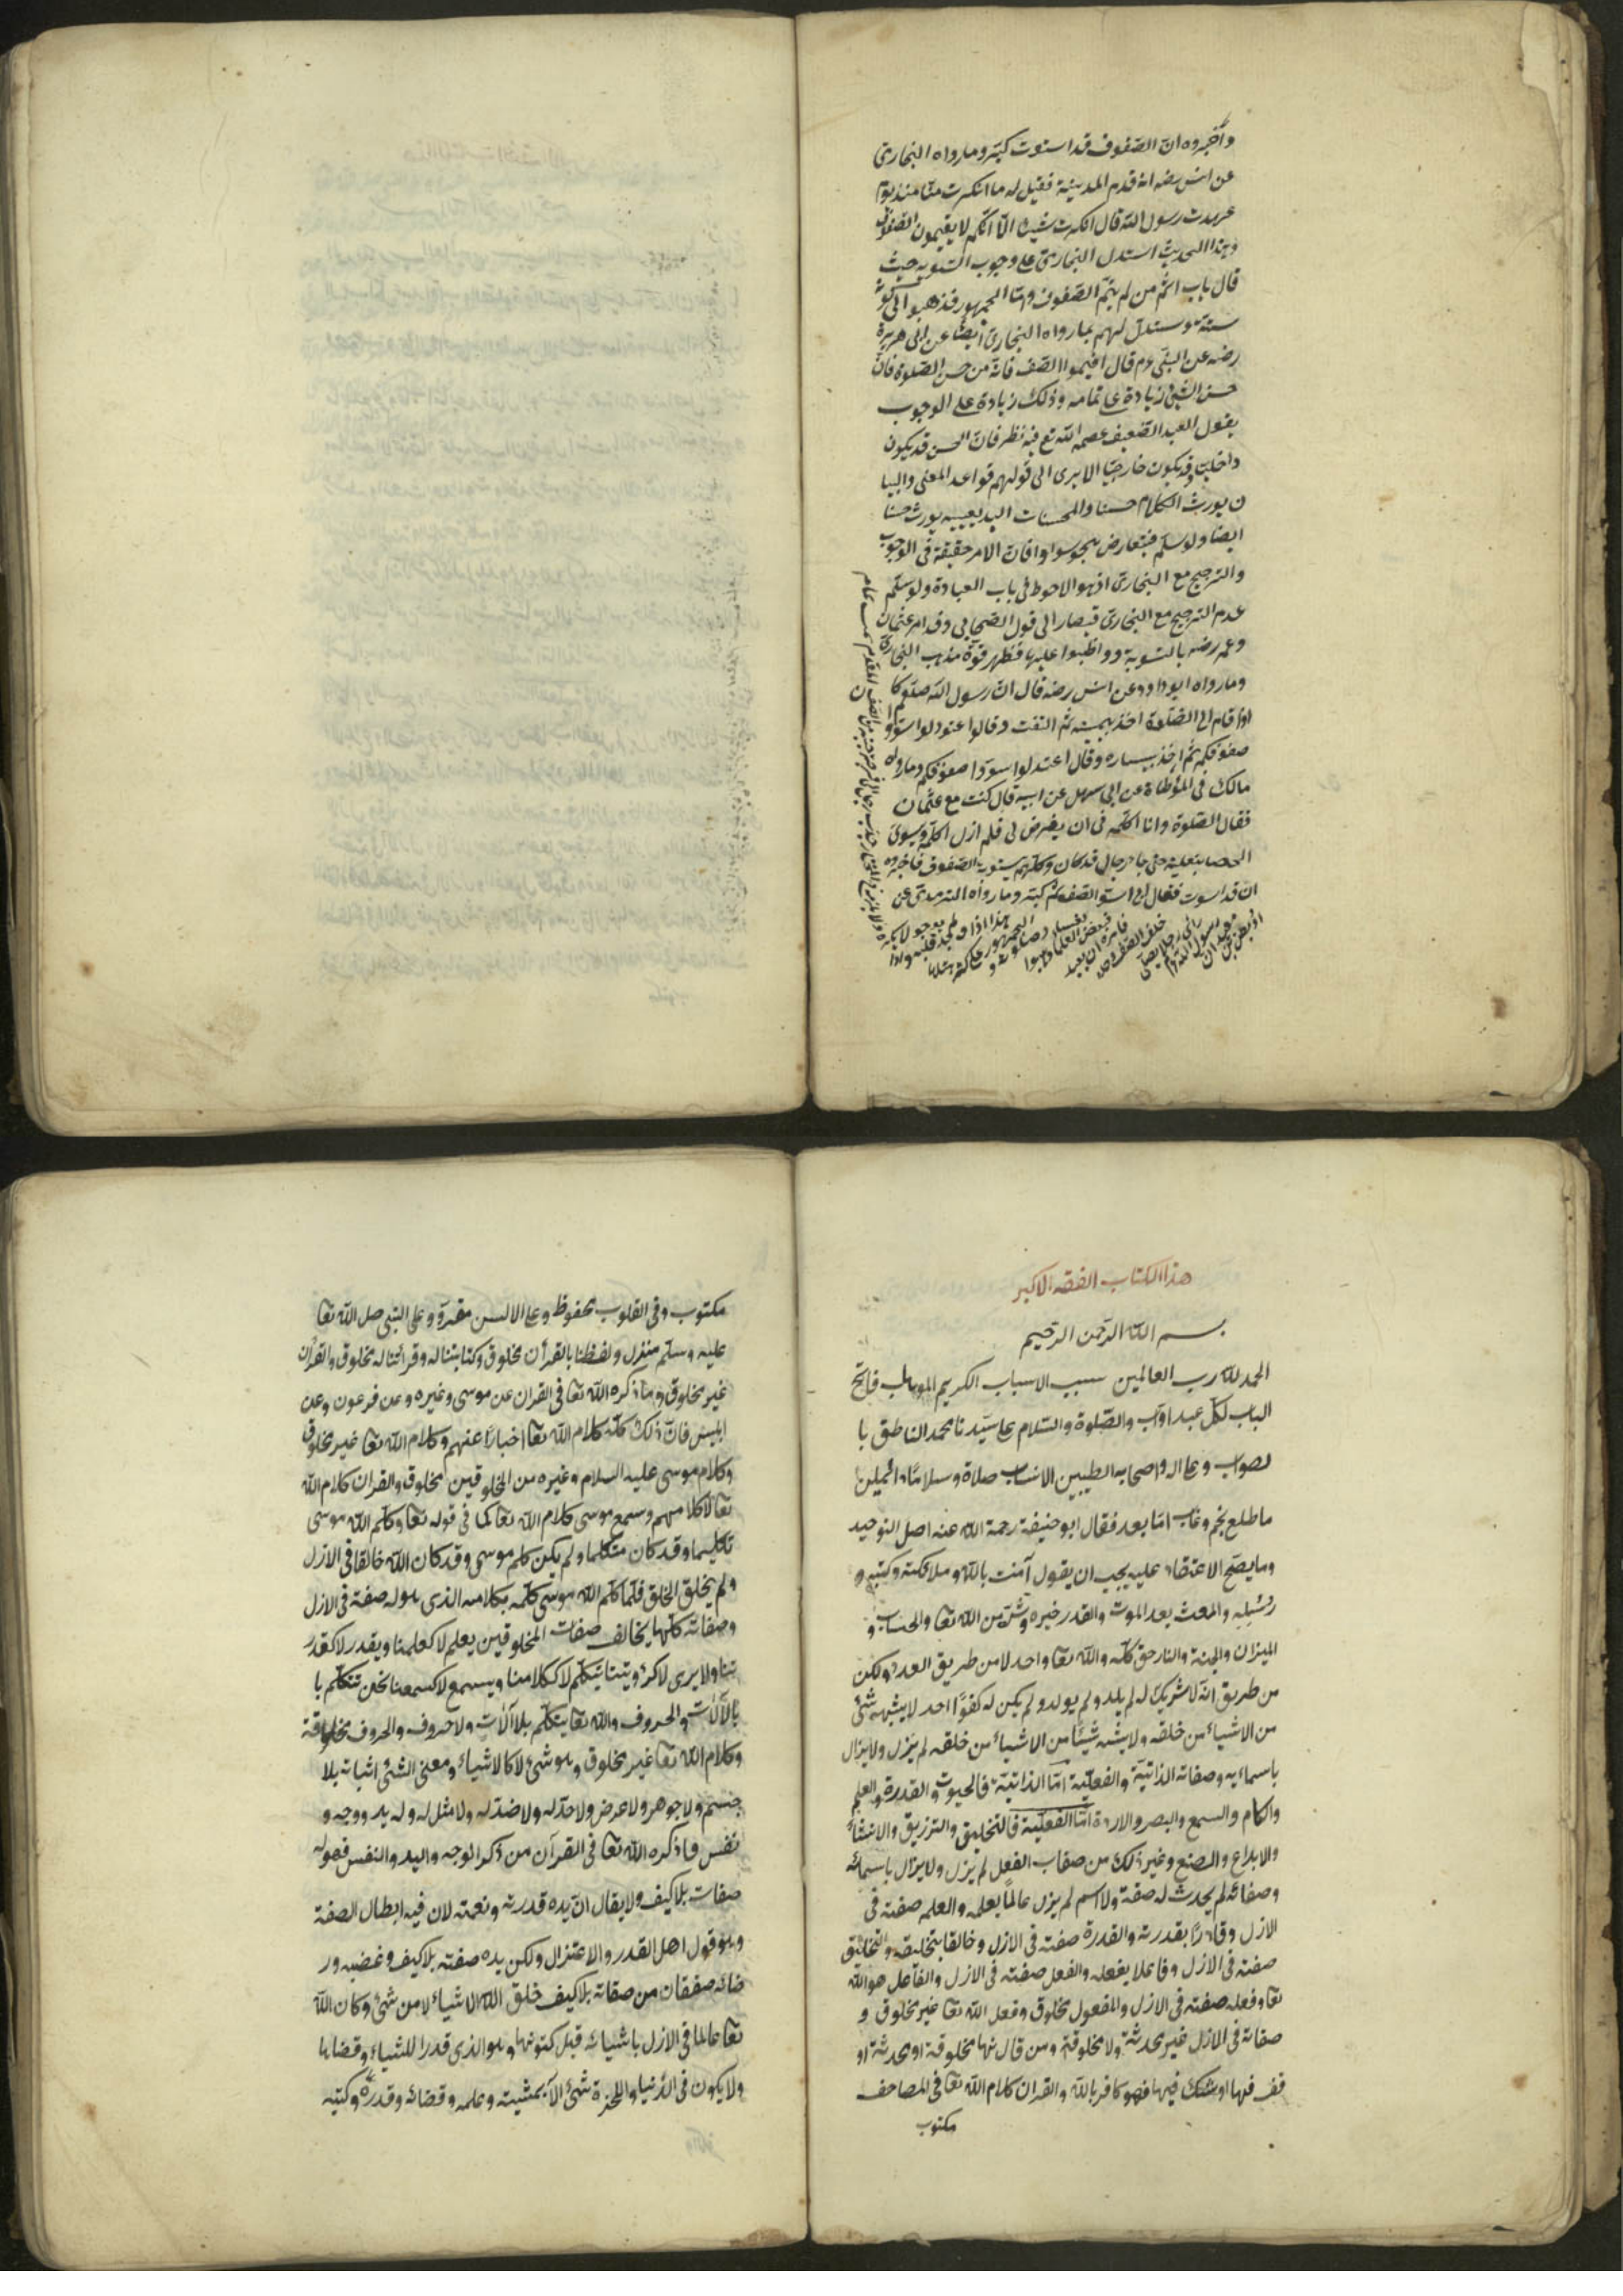 وأخبروه ان الصفوف قد استوت كبّر وما رواه البخارى
عن انس رضه انه قدم المدينة فقيل له ما انكرت منّا منذ يوم
عهدت رسول الله قال ما انكرت شيئا الّا انّكم لا يقيمون الصفوف
وبهذا الحديث استدل البخارى على وجوب التسوية حيث
قال باب اثم من لم يتمّ الصفوف وامّا الجمهور فذهبوا الى كونه
سنة ويستدلّ لهم بما رواه البخارى ايضًا عن ابى هريرة
رضه عن النبى عم قال اقيموا الصف فانّه من حسن الصلوة فانّ
حسن الشئ زيادة على تمامه وذلك زيادة على الوجوب
يقول العبد الضعيف عصمه الله تع فيه نظر فانّ الحسن قد يكون
داخليّا وقد يكون خارجيّا الا يرى الى قولهم قواعد المعنى والبيا
ن يورث الكلام حسنا والمحسنات البديعيه يورث حسنا
ايضا ولو سلّم فيتعارض فانّ الامر حقيقة فى الوجوب
والترجيح مع البخارى اذ هو الاحوط فى باب العبادة ولو سلّم
عدم الترجيح مع البخارى فيصار الى قول الصحابى وقد امر عثمان
وعمر رضه بالتسوية وواظبوا عليها فظهر قوّة مذهب البخارى
وما رواه ابو داود عن انس رضه قال ان رسول الله صلعم كا
ن اذا قام الى الصلوة اخذ بيمينه ثم التفت وقال اعتدلوا استووا
صفوفكم ثم اخذ بيساره وقال اعتدلوا سوّوا صفوفكم وما رواه
مالك فى المؤطاة عن ابى سهيل عن ابيه قال كنت مع عثمان
فقال الصلوة وانا اكلّمه فى ان يفرض لى فلم ازل اكلّمه ويسوى
الحصا بنعليه حتى جاء رجال قد كان وكلهم بتسوية الصفوف فاخبروه
ان قد استوت فقال لى استو الصف ثم كبّر وما رواه الترمذى عن
هذا الكتاب الفقه الاكبر
بسم الله الرّحمن الرّحيم
الحمد لله رب العالمين مسبب الاسباب الكريم الوهاب فاتح
الباب لكلّ عبد اوّاب والصّلوة والسّلام على سيّدنا محمد الناطق با
لصواب وعلى اله واصحابه الطيبين الانساب صلاة وسلامًا دائمين
ما طلع نجم وغاب امّا بعد فقال ابو حنيفة رحمة الله عنه اصل التوحيد
وما يصحّ الاعتقاد عليه يجب ان يقول آمنت بالله وملائكته وكتبه و
رُسُلِه والبعث بعد الموت والقدر خيره وشرّه من الله تعا والحساب و
الميزان والجنة والنار حق كلّه والله تعا واحد لا من طريق العدد ولكن
من طريق انّه لا شريك له لم يلد ولم يولد ولم يكن له كفوًا احد لا يشبهه شئ
من الاشياء من خلقه ولا يشبه شيئًا من الاشياء من خلقه لم يزل ولا يزال
باسمائه وصفاته الذاتيّة والفعليّة امّا الذاتيّة فالحيوة والقدرة والعلم
والكلام والسمع والبصر والارادة امّا الفعليّة فالتخليق والترزيق والانشاء
والابداع والصنع وغير ذلك من صفات الفعل لم يزل ولا يزال باسمائه
وصفاته لم يحدث له صفة ولا اسم لم يزل عالمًا بعلمه والعلم صفته فى
الازل وقادرًا بقدرته والقدرة صفته فى الازل وخالقا بتخليقه والتخليق
صفته فى الازل وفاعلا بفعله والفعل صفته فى الازل والفاعل هو الله
تعا وفعله صفته فى الازل والمفعول مخلوق وفعل الله تعا غير مخلوق و
صفاته فى الازل غير محدثة ولا مخلوقة ومن قال انها مخلوقة او محدثة او
قف فيها او شك فيها فهو كافر بالله والقران كلام الله تعا فى المصاحف
مكتوب
مكتوب وفى القلوب محفوظ وعلى الالسن مقروّ وعلى النبى صل الله تعا
عليه وسلّم منزل ولفظنا بالقرآن مخلوق وكتابتنا له وقرائتنا له مخلوق والقرآن
غير مخلوق وما ذكره الله تعا فى القران عن موسى وغيره وعن فرعون وعن
ابليس فانّ ذلك كلّه كلام الله تعا اخبارًا عنهم وكلام الله تعا غير مخلوق
وكلام موسى عليه السلام وغيره من المخلوقين مخلوق والقران كلام الله
تعا لا كلامهم وسمع موسى كلام الله تعا كما فى قوله تعا وكلّم الله موسى
تكليما وقد كان متكلما ولم يكن كلم موسى وقد كان الله خالقا فى الازل
ولم يخلق الخلق فلمّا كلّم الله موسى كلّمه بكلامه الذى هو له صفة فى الازل
وصفاته كلّها يخالف صفات المخلوقين يعلم لا كعلمنا ويقدر لا كقدر
تنا ولا يرى لا كرؤيتنا يتكلّم لا ككلامنا ويسمع لا كسمعنا نحن نتكلّم با
بالآلات والحروف والله تعا يتكلّم بلا آلات ولا حروف والحروف مخلوقة
وكلام الله تعا غير مخلوق وهو شئ لا كالاشياء ومعنى الشئ اثباته بلا
جسم ولا جوهر ولا عرض ولا حدّ له ولا ضدّ له ولا مثل له وله يد ووجه و
نفس فما ذكره الله تعا فى القرآن من ذكر الوجه واليد والنفس فهو له
صفات بلا كيف ولا يقال انّ يده قدرته ونعمته لان فيه ابطال الصفة
وهو قول اهل القدر والاعتزال ولكن يده صفته بلا كيف وغضبه ور
ضائه صفقان من صفاته بلا كيف خلق الله الاشياء لا من شئ وكان الله
تعا عالما فى الازل باشيائه قبل كنونها وهو الذى قدر الاشياء وقضاها
ولا يكون فى الدّنيا والاخرة شئ الّا بمشيته وعلمه وقضائه وقدره وكتبه